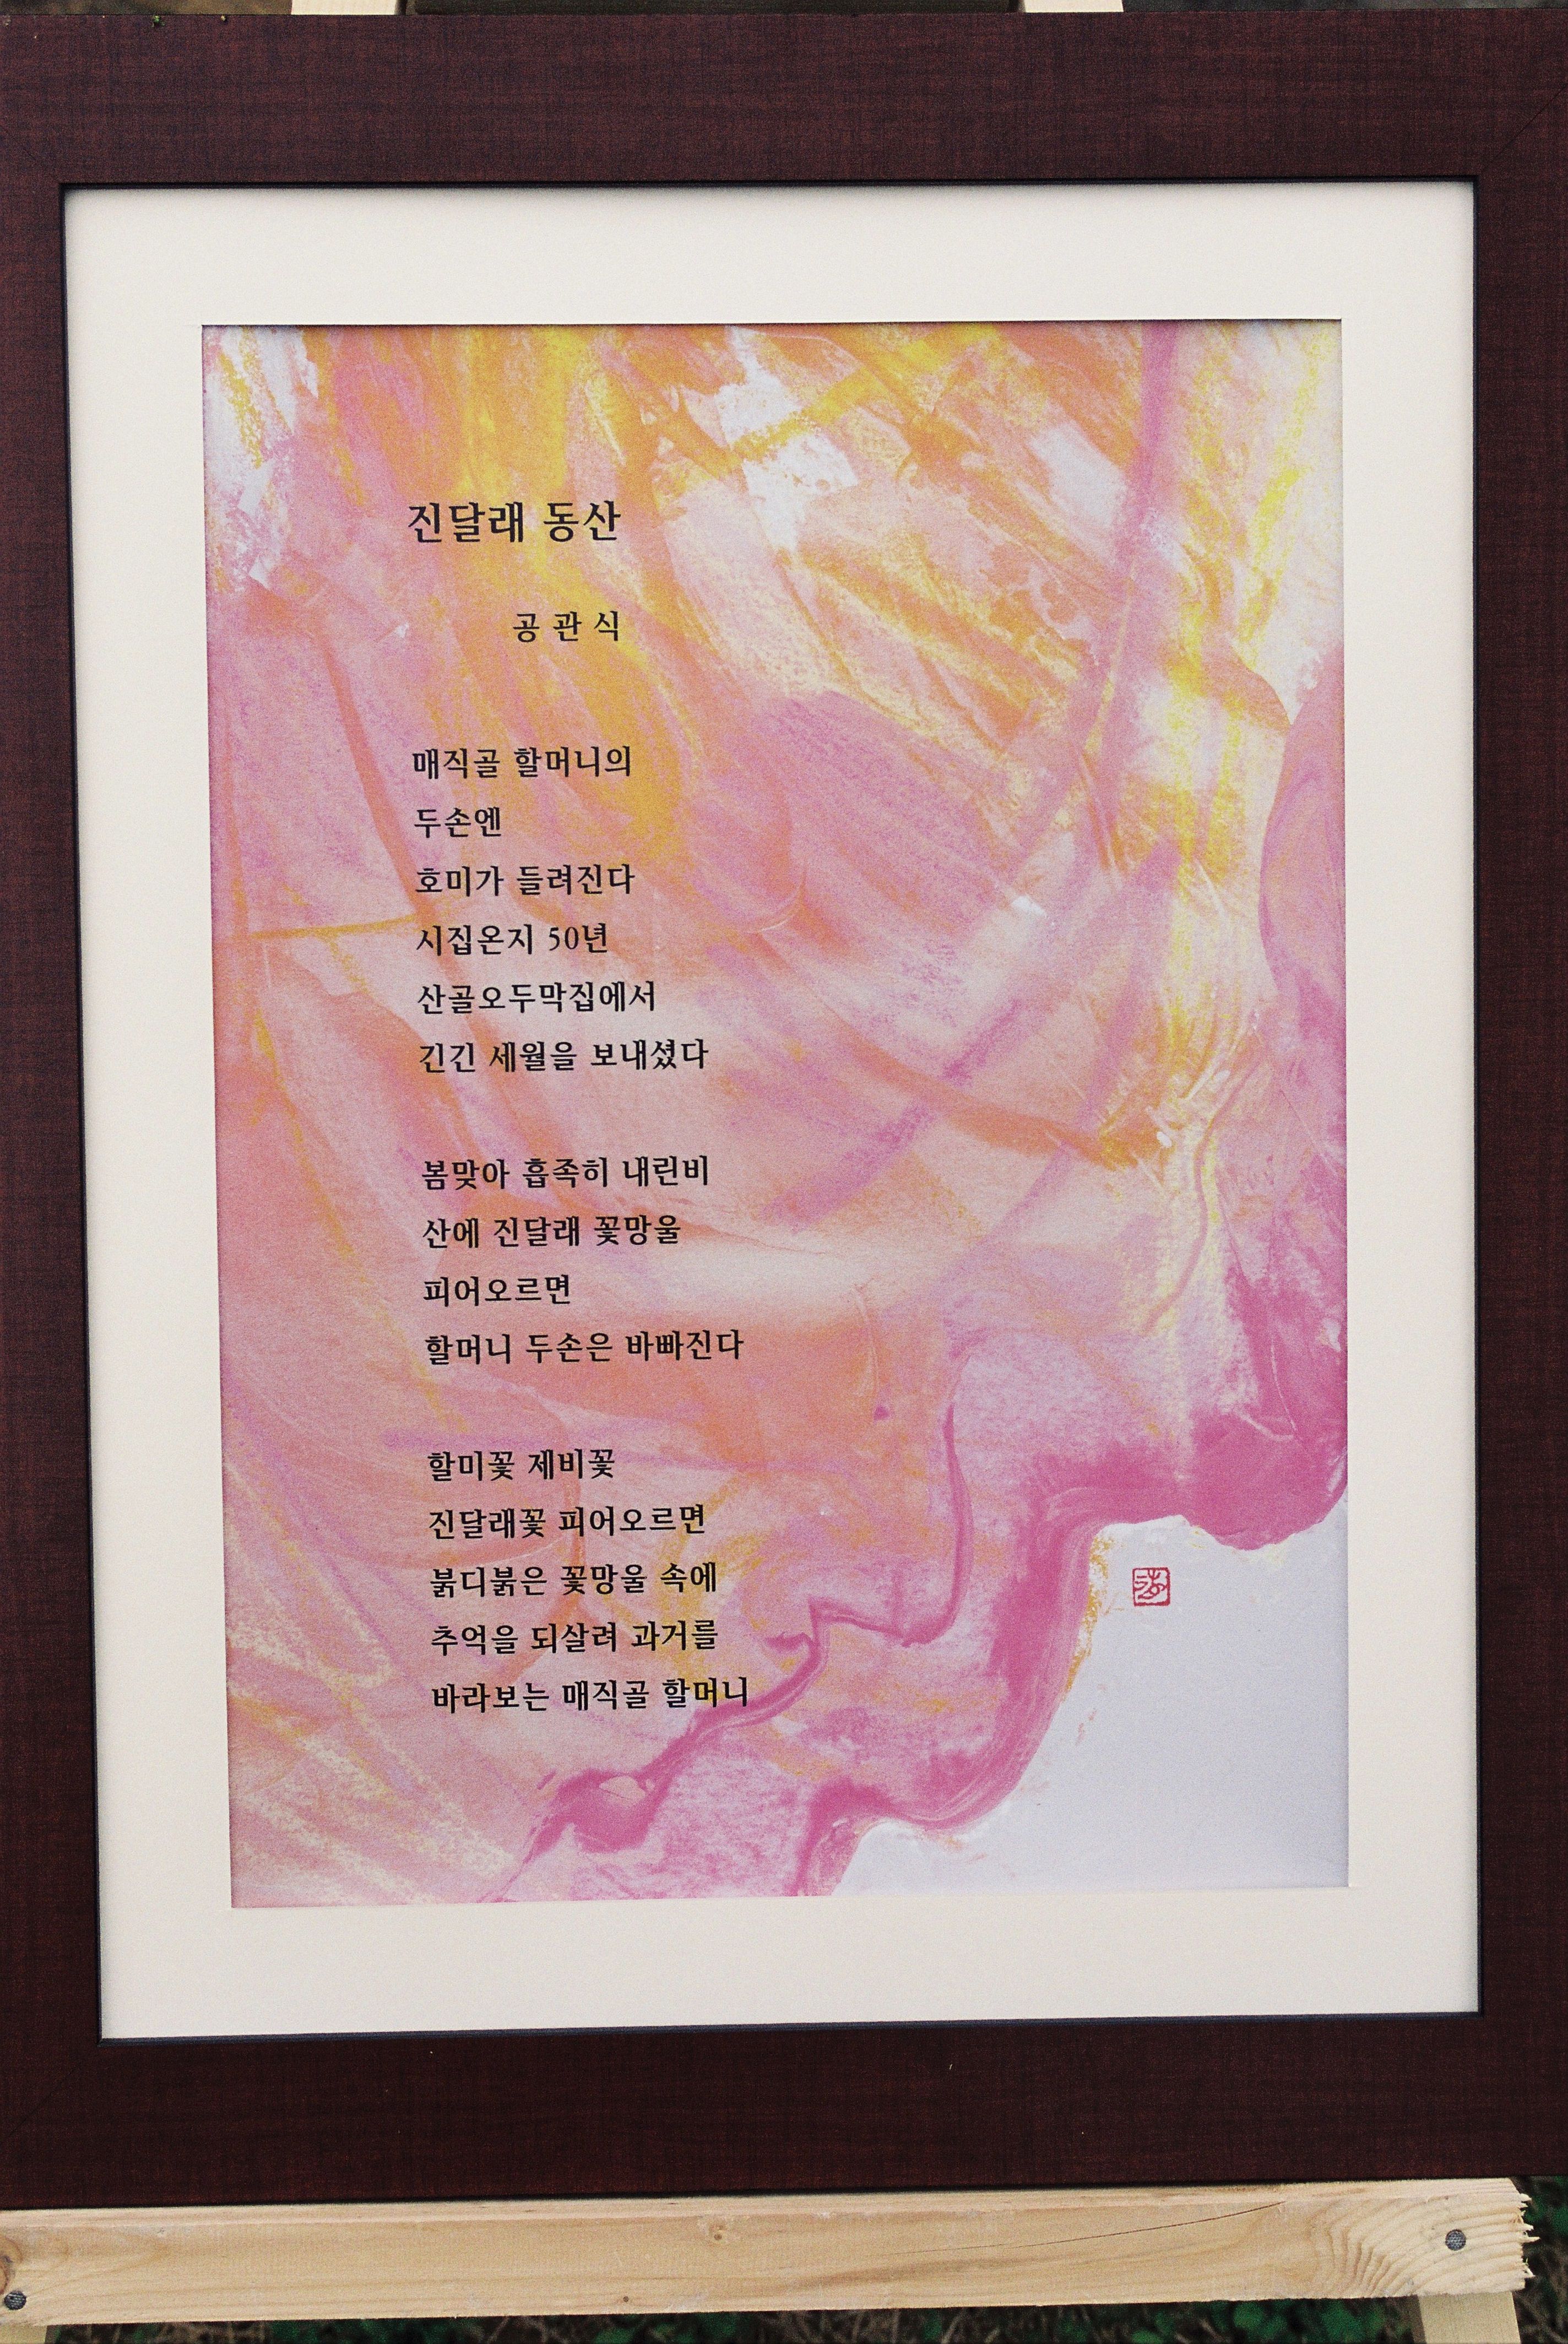 진달래 동산
공 관 식
매직골 할머니의
두손엔
호미가 들려진다
시집온지 50년
산골오두막집에서
긴긴 세월을 보내셨다
봄맞아 흡족히 내린비
산에 진달래 꽃망울
피어오르면
할머니 두손은 바빠진다
할미꽃 제비꽃
진달래꽃 피어오르면
붉디붉은 꽃망울 속에
추억을 되살려 과거를
바라보는 매직골 할머니